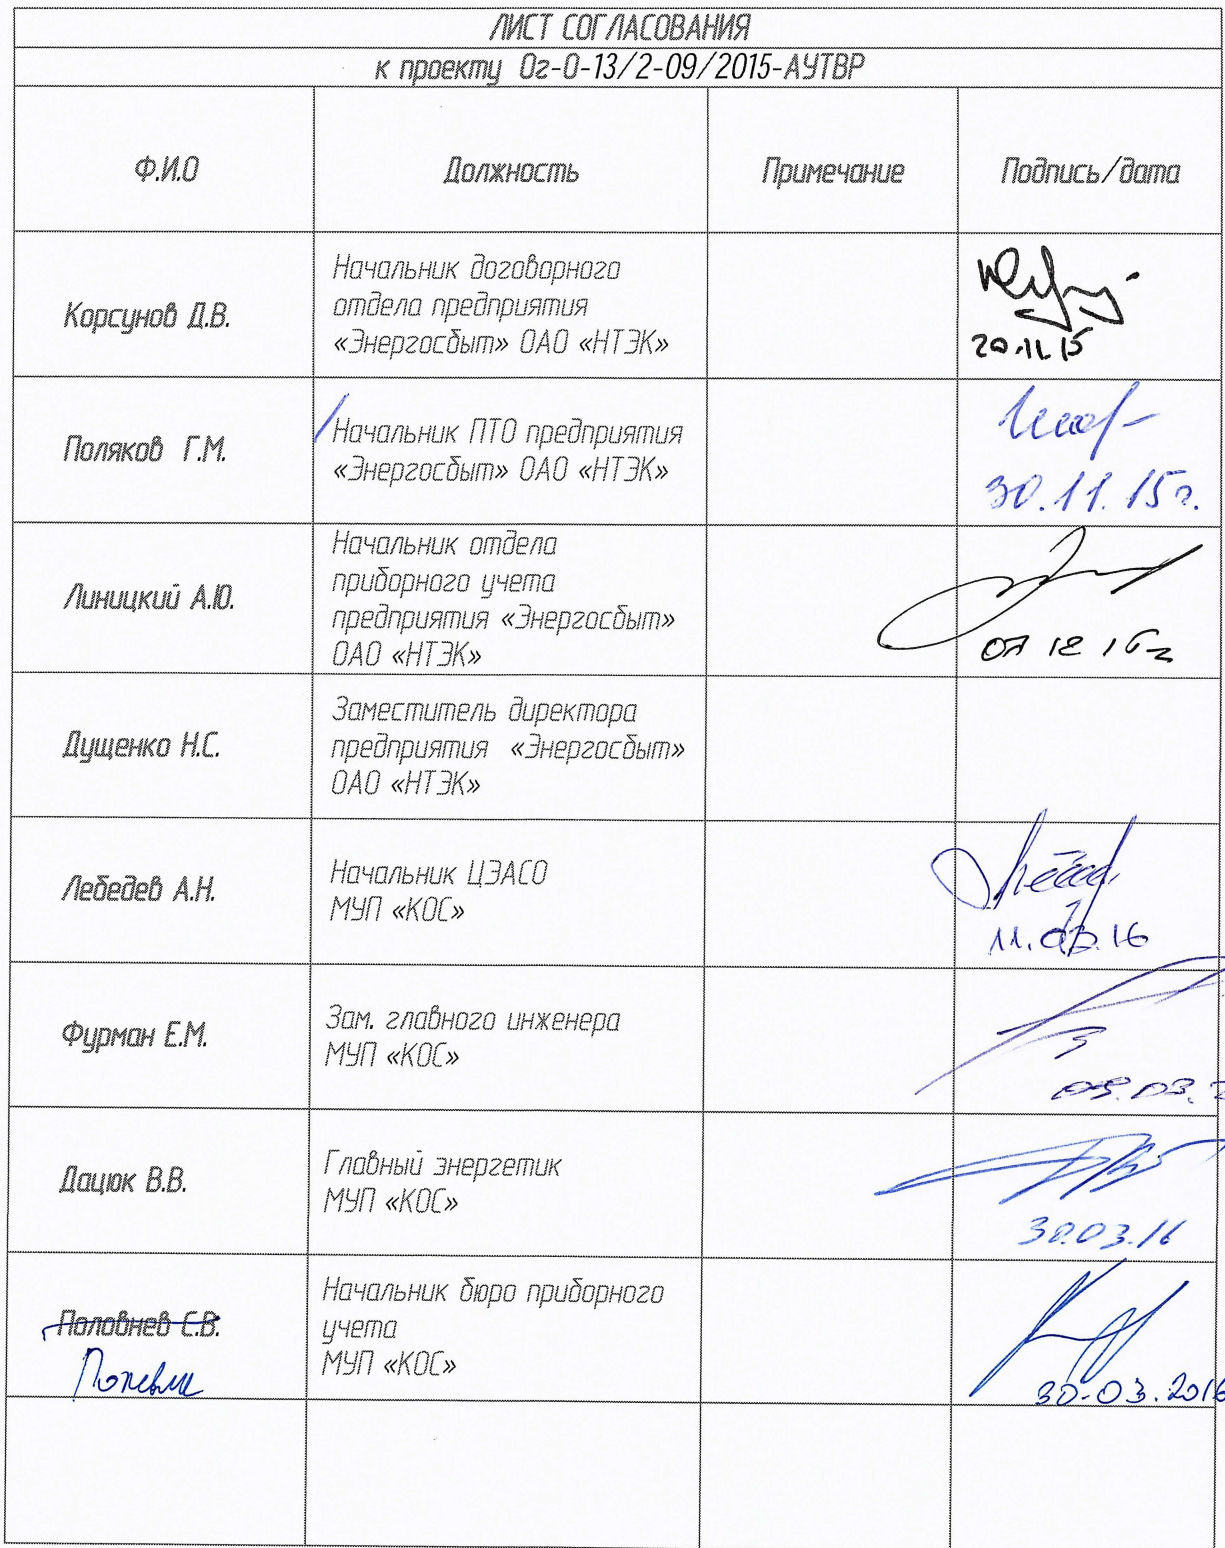 ЛИСТ СОГЛАСОВАНИЯ
к проекту Ог-О-13/2-09/2015-АУТВР
Ф.И.О
Должность
Примечание
Подпись/дата
Корсунов Д.В.
Начальник договорного
отдела предприятия
«Энергосбыт» ОАО «НТЭК»
20.11.15
Поляков Г.М.
Начальник ПТО предприятия
«Энергосбыт» ОАО «НТЭК»
30.11.15г.
Линицкий А.Ю.
Начальник отдела
приборного учета
предприятия «Энергосбыт»
ОАО «НТЭК»
07 12 15г
Дущенко Н.С.
Заместитель директора
предприятия «Энергосбыт»
ОАО «НТЭК»
Лебедев А.Н.
Начальник ЦЭАСО
МУП «КОС»
11.03.16
Фурман Е.М.
Зам. главного инженера
МУП «КОС»
Дацюк В.В.
Главный энергетик
МУП «КОС»
30.03.16
Половнев С.В.
Начальник бюро приборного
учета
МУП «КОС»
30.03.2016